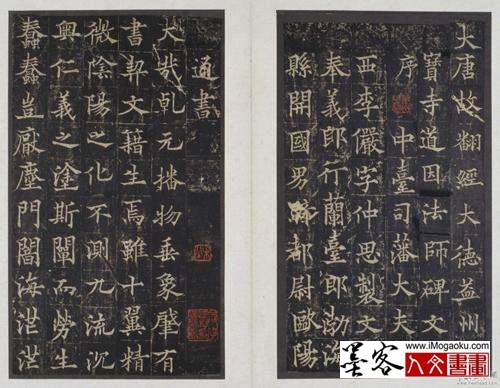 大唐故翻經大德益州
寶寺道因法師碑文
序 中臺司藩大夫
西李儼字仲思製文
奉義郎行蘭臺郎勃海
縣開國男騎都尉歐陽
通書
大哉乾元播物垂象肇有
書契文籍生焉雖十翼精
微陰陽之化不測九流沉
奧仁義之塗斯闡而勞生
蠢蠢豈厭塵門海茫茫
墨客 www.iMogaoku.com
人文書畫